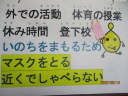 外での活動 体育の授業
休み時間 登下校
いのちをまもるため
マスクをとる
近くでしゃべらない